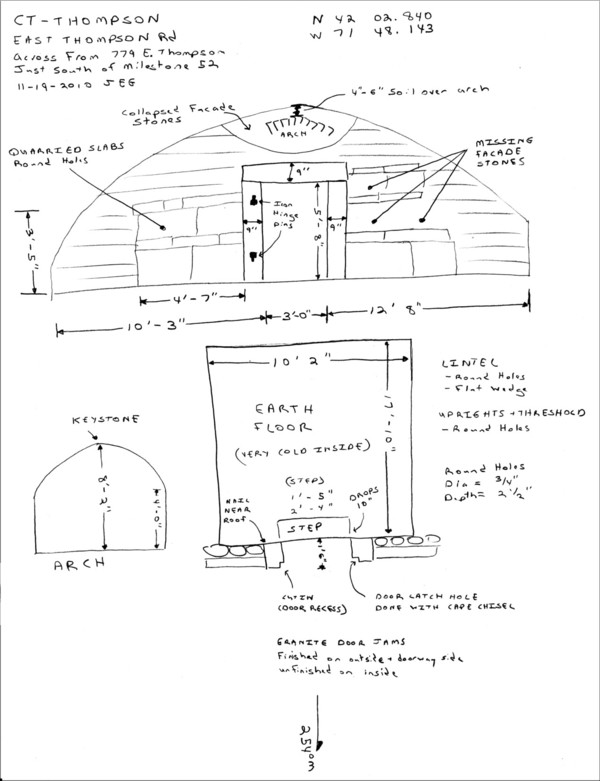 CT-THOMPSON
EAST THOMPSON Rd
Across From 779 E. Thompson
Just South of Milestone 52
11-19-2010 JEG
N 42 02.840
W 71 48.143
4"-6" Soil over arch
Collapsed Facade
Stones
ARCH
QUARRIED SLABS
Round Holes
MISSING
FACADE
STONES
9"
Iron
Hinge
Pins
9"
5'-8"
9"
3'-5"
4'-7"
10'-3"
3'-0"
12' 8"
10' 2"
17'-10"
EARTH
FLOOR
(VERY COLD INSIDE)
LINTEL
- Round Holes
- Flat Wedge
UPRIGHTS + THRESHOLD
- Round Holes
Round Holes
Dia = 3/4"
Depth = 2 1/2"
KEYSTONE
8'-2"
4'-0"
ARCH
(STEP)
1'-5"
2'-4"
DROPS
10"
NAIL
NEAR
ROOF
STEP
1'6"
CUT IN
(DOOR RECESS)
DOOR LATCH HOLE
DONE WITH CAPE CHISEL
GRANITE DOOR JAMS
Finished on outside + doorway side
unfinished on inside
254°M